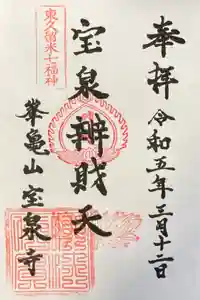 奉拝
令和五年三月十二日
東久留米七福神
宝泉辨財天
峯亀山宝泉寺